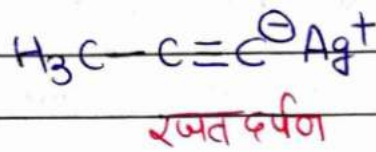 H₃C－C≡C⊖Ag⁺
रजत दर्पण